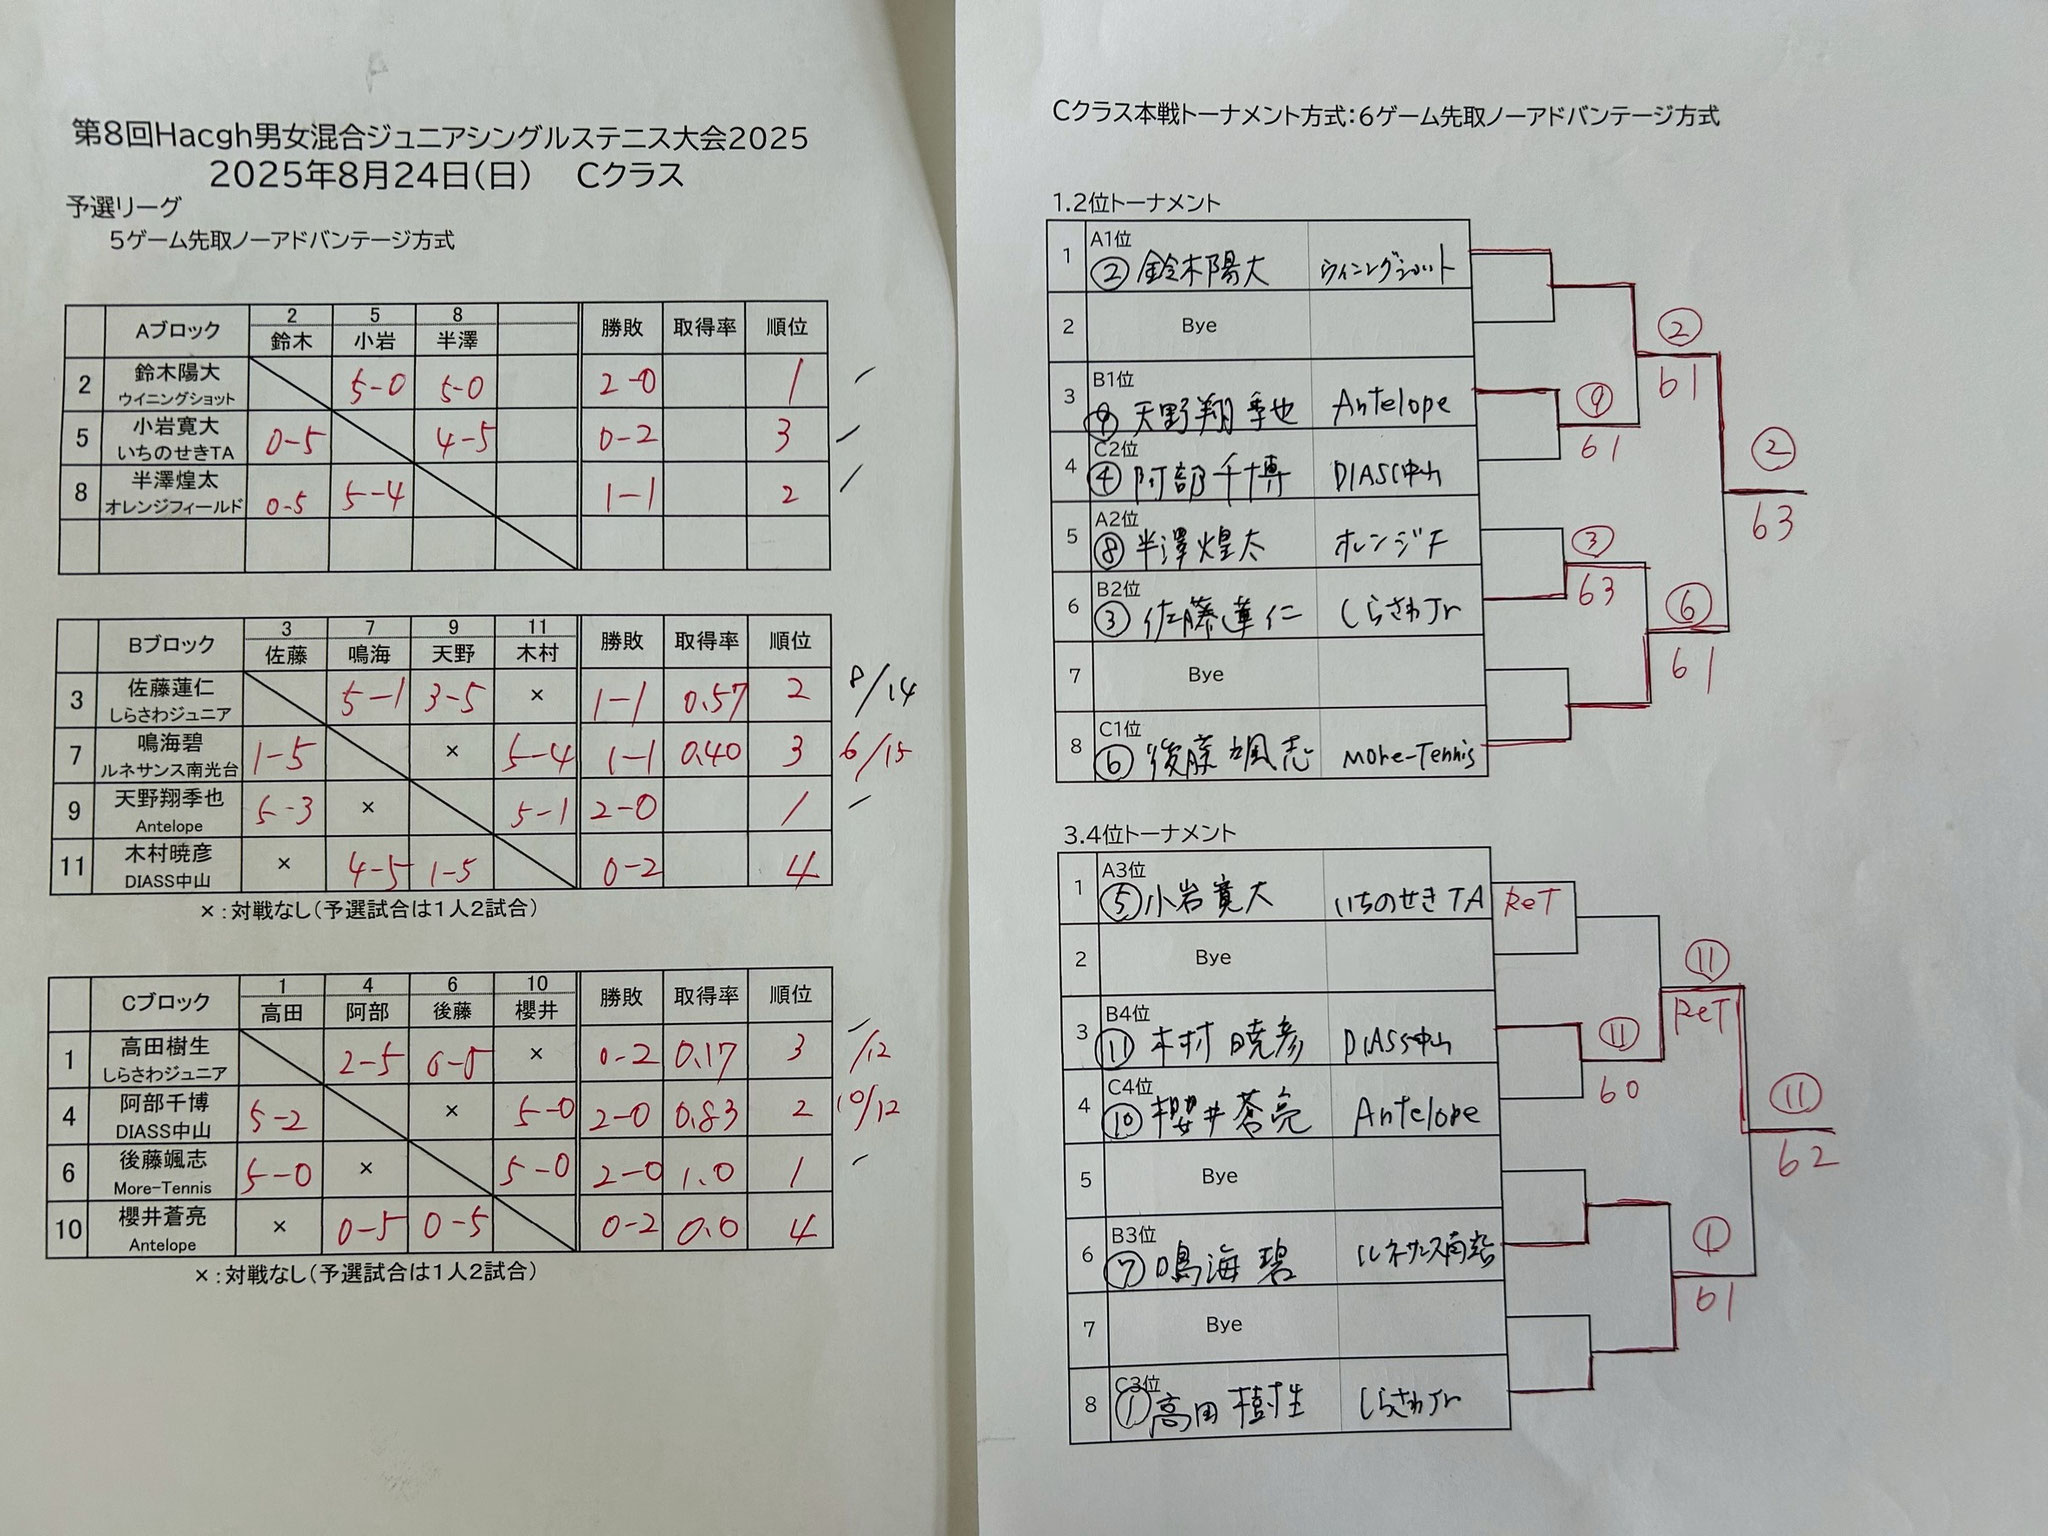 第8回Hacgh男女混合ジュニアシングルステニス大会2025
2025年8月24日(日) Cクラス
予選リーグ
5ゲーム先取ノーアドバンテージ方式
Aブロック 2 鈴木 5 小岩 8 半澤 勝敗 取得率 順位
2 鈴木陽大 ウイニングショット 5-0 5-0 2-0 1
5 小岩寛大 いちのせきTA 0-5 4-5 0-2 3
8 半澤煌太 オレンジフィールド 0-5 5-4 1-1 2
Bブロック 3 佐藤 7 鳴海 9 天野 11 木村 勝敗 取得率 順位
3 佐藤蓮仁 しらさわジュニア 5-1 3-5 × 1-1 0.57 2 8/14
7 鳴海碧 ルネサンス南光台 1-5 × 5-4 1-1 0.40 3 6/15
9 天野翔季也 Antelope 5-3 × 5-1 2-0 1
11 木村暁彦 DIASS中山 × 4-5 1-5 0-2 4
×:対戦なし(予選試合は1人2試合)
Cブロック 1 高田 4 阿部 6 後藤 10 櫻井 勝敗 取得率 順位
1 高田樹生 しらさわジュニア 2-5 0-5 × 0-2 0.17 3 /12
4 阿部千博 DIASS中山 5-2 × 5-0 2-0 0.83 2 10/12
6 後藤颯志 More-Tennis 5-0 × 5-0 2-0 1.0 1
10 櫻井蒼亮 Antelope × 0-5 0-5 0-2 0.0 4
×:対戦なし(予選試合は1人2試合)
Cクラス本戦トーナメント方式:6ゲーム先取ノーアドバンテージ方式
1.2位トーナメント
1 A1位 ② 鈴木陽大 ウィニングショット
2 Bye
② 61
3 B1位 ⑨ 天野翔季也 Antelope
⑨ 61
4 C2位 ④ 阿部千博 DIASS中山
② 63
5 A2位 ⑧ 半澤煌太 オレンジF
③ 63
6 B2位 ③ 佐藤蓮仁 しらさわJr
⑥ 61
7 Bye
8 C1位 ⑥ 後藤颯志 More-Tennis
3.4位トーナメント
1 A3位 ⑤ 小岩寛大 いちのせきTA ReT
2 Bye
⑪ ReT
3 B4位 ⑪ 木村暁彦 DIASS中山
⑪ 60
4 C4位 ⑩ 櫻井蒼亮 Antelope
⑪ 62
5 Bye
6 B3位 ⑦ 鳴海碧 ルネサンス南光台
① 61
7 Bye
8 C3位 ① 高田樹生 しらさわJr